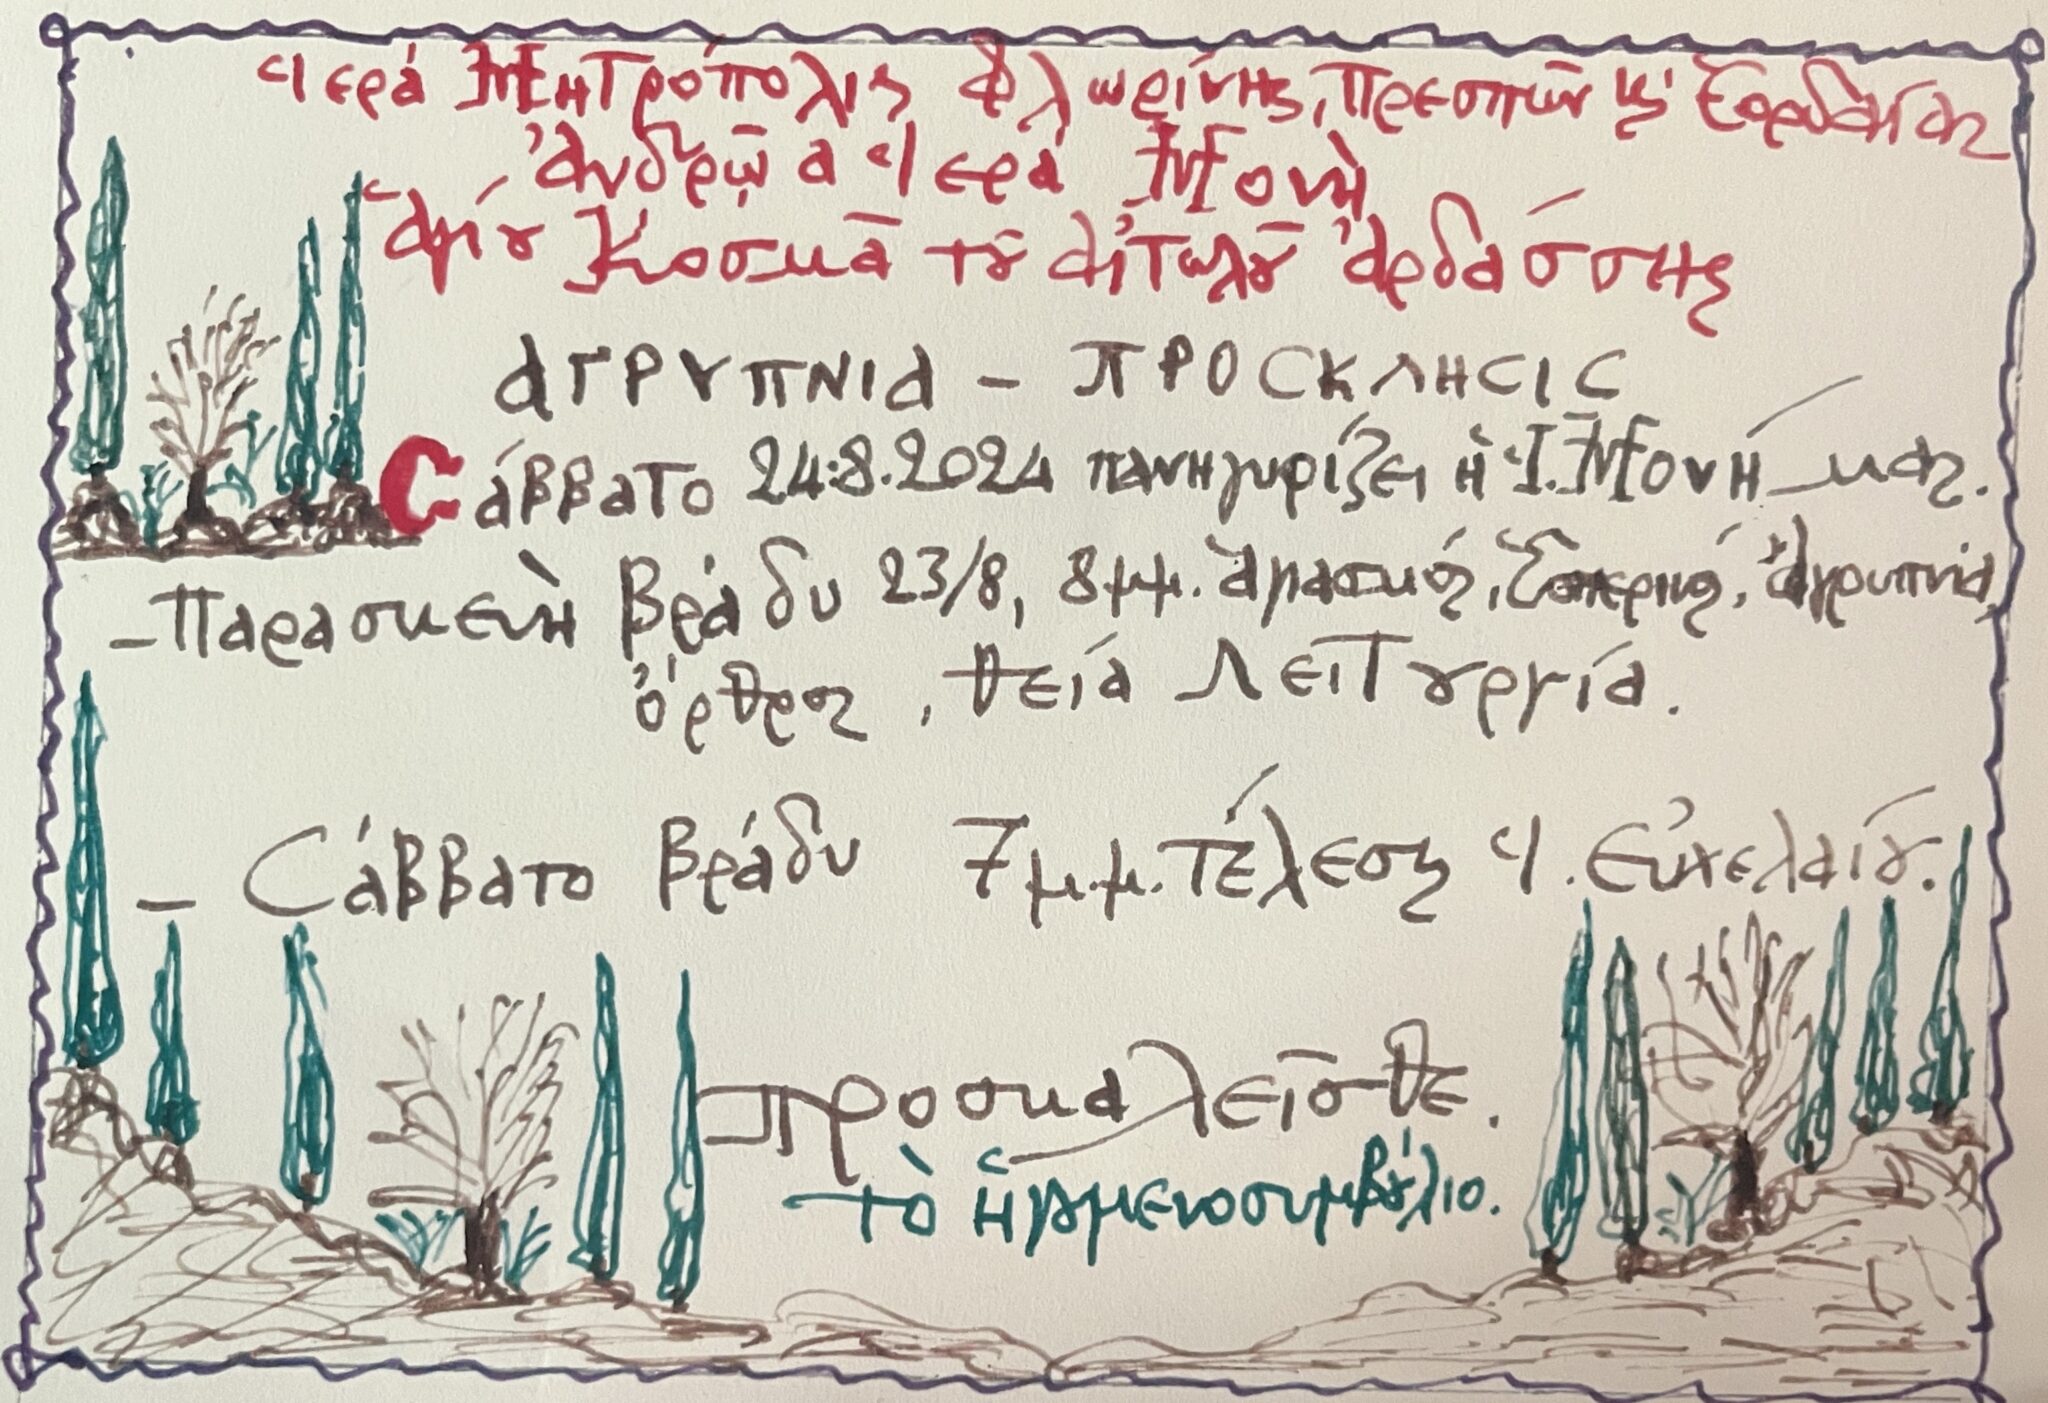 Ἱερά Μητρόπολις Φλωρίνης, Πρεσπῶν κ' Ἐορδαίας
Ἀνδρῴα Ἱερά Μονή
Ἁγίου Κοσμᾶ τοῦ Αἰτωλοῦ Ἀρδάσσης
ΑΓΡΥΠΝΙΑ - ΠΡΟCΚΛΗCΙC
Cάββατο 24.8.2024 πανηγυρίζει ἡ Ἱ. Μονή μας.
- Παρασκευή βράδυ 23/8, 8 μμ. Ἁγιασμός, Ἑσπερινός, Ἀγρυπνία,
ὄρθρος, θεία Λειτουργία.
- Cάββατο βράδυ 7 μ.μ. τέλεσις Ἱ. Εὐχελαίου.
προσκαλεῖσθε.
τὸ ἡγουμενοσυμβούλιο.